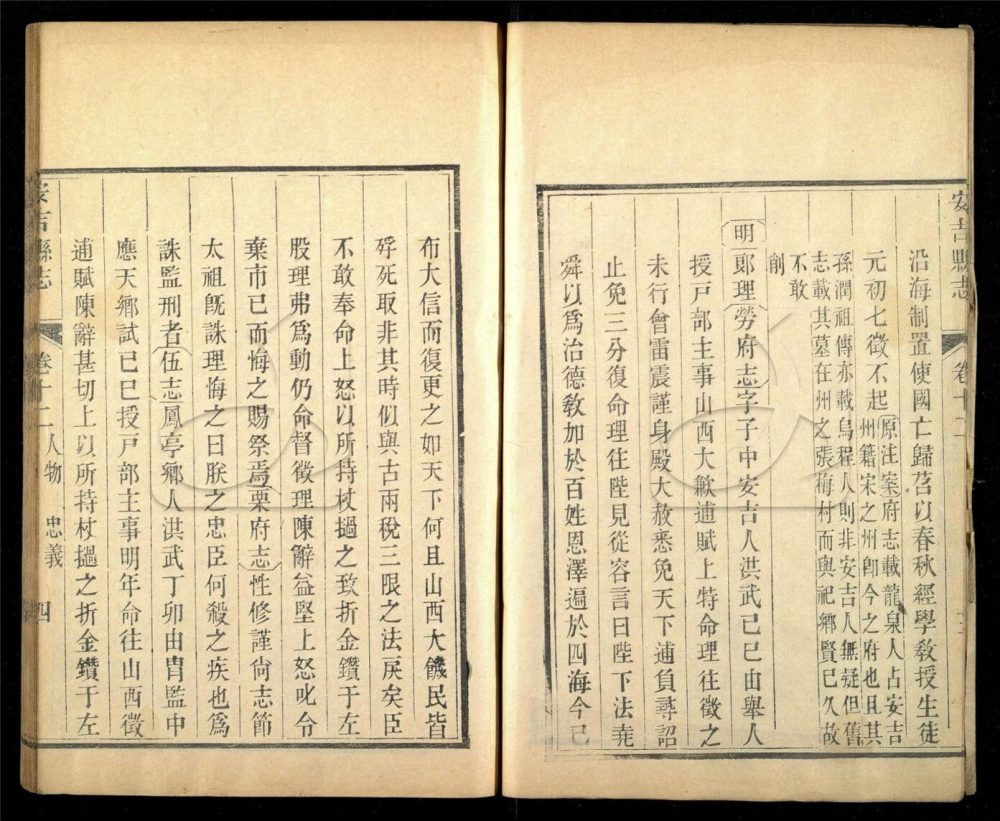 安吉縣志
卷十二
沿海制置使國亡歸苕以春秋經學教授生徒
元初七徵不起原注案府志載龍泉人占安吉
州籍宋之州卽今之府也且其
孫潤祖傳亦載烏程人則非安吉人無疑但舊
志載其墓在州之張梅村而與祀鄉賢已久故
不敢
削
明
郞理勞府志字子中安吉人洪武己巳由舉人
授戸部主事山西大歉逋賦上特命理往徵之
未行曾雷震謹身殿大赦悉免天下逋負尋詔
止免三分復命理往陛見從容言曰陛下法堯
舜以爲治德教加於百姓恩澤遍於四海今已
布大信而復更之如天下何且山西大饑民皆
殍死取非其時似與古兩稅三限之法戾矣臣
不敢奉命上怒以所持杖撾之致折金鑽于左
股理弗爲動仍命督徵理陳辭益堅上怒叱令
棄市已而悔之賜祭焉栗府志性修謹尙志節
太祖旣誅理悔之曰朕之忠臣何殺之疾也爲
誅監刑者伍志鳳亭鄉人洪武丁卯由冑監中
應天鄉試己巳授戸部主事明年命往山西徵
逋賦陳辭甚切上以所持杖撾之折金鑽于左
安吉縣志
卷十二 人物 忠義
四